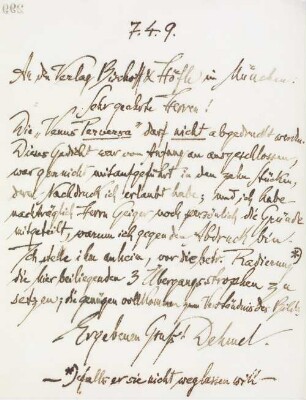 7.4.9.
An den Verlag Bischoff & Höfle in München.
Sehr geehrte Herren!
Die „Venus Perversa" darf nicht abgedruckt werden.
Dieses Gedicht war von Anfang an ausgeschlossen,
war gar nicht mitaufgeführt in den zehn Stücken,
deren Nachdruck ich erlaubt habe; und ich habe
nachträglich Herrn Geiger noch persönlich die Gründe
mitgeteilt, warum ich gegen den Abdruck bin.
Ich stelle ihm anheim, vor die betr. Radierung *)
die hier beiliegenden 3 Übergangsstrophen zu
setzen; die genügen vollkommen zum Verständnis des Bildes.
Ergebenen Gruß! Dehmel.
— *) falls er sie nicht weglassen will —